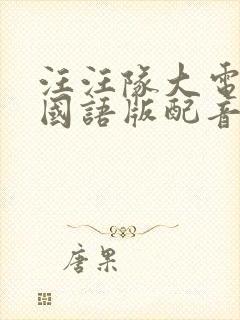 汪汪隊大電
國語版配音
唐果